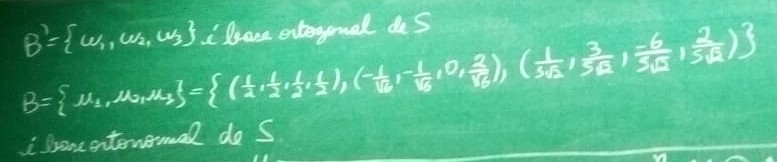 B'={w₁, w₂, w₃} é base ortogonal de S
B={u₁, u₂, u₃}={(1/2, 1/2, 1/2, 1/2), (-1/√6, -1/√6, 0, 2/√6), (1/5√2, 3/5√2, -6/5√2, 2/5√2)}
é base ortonormal de S